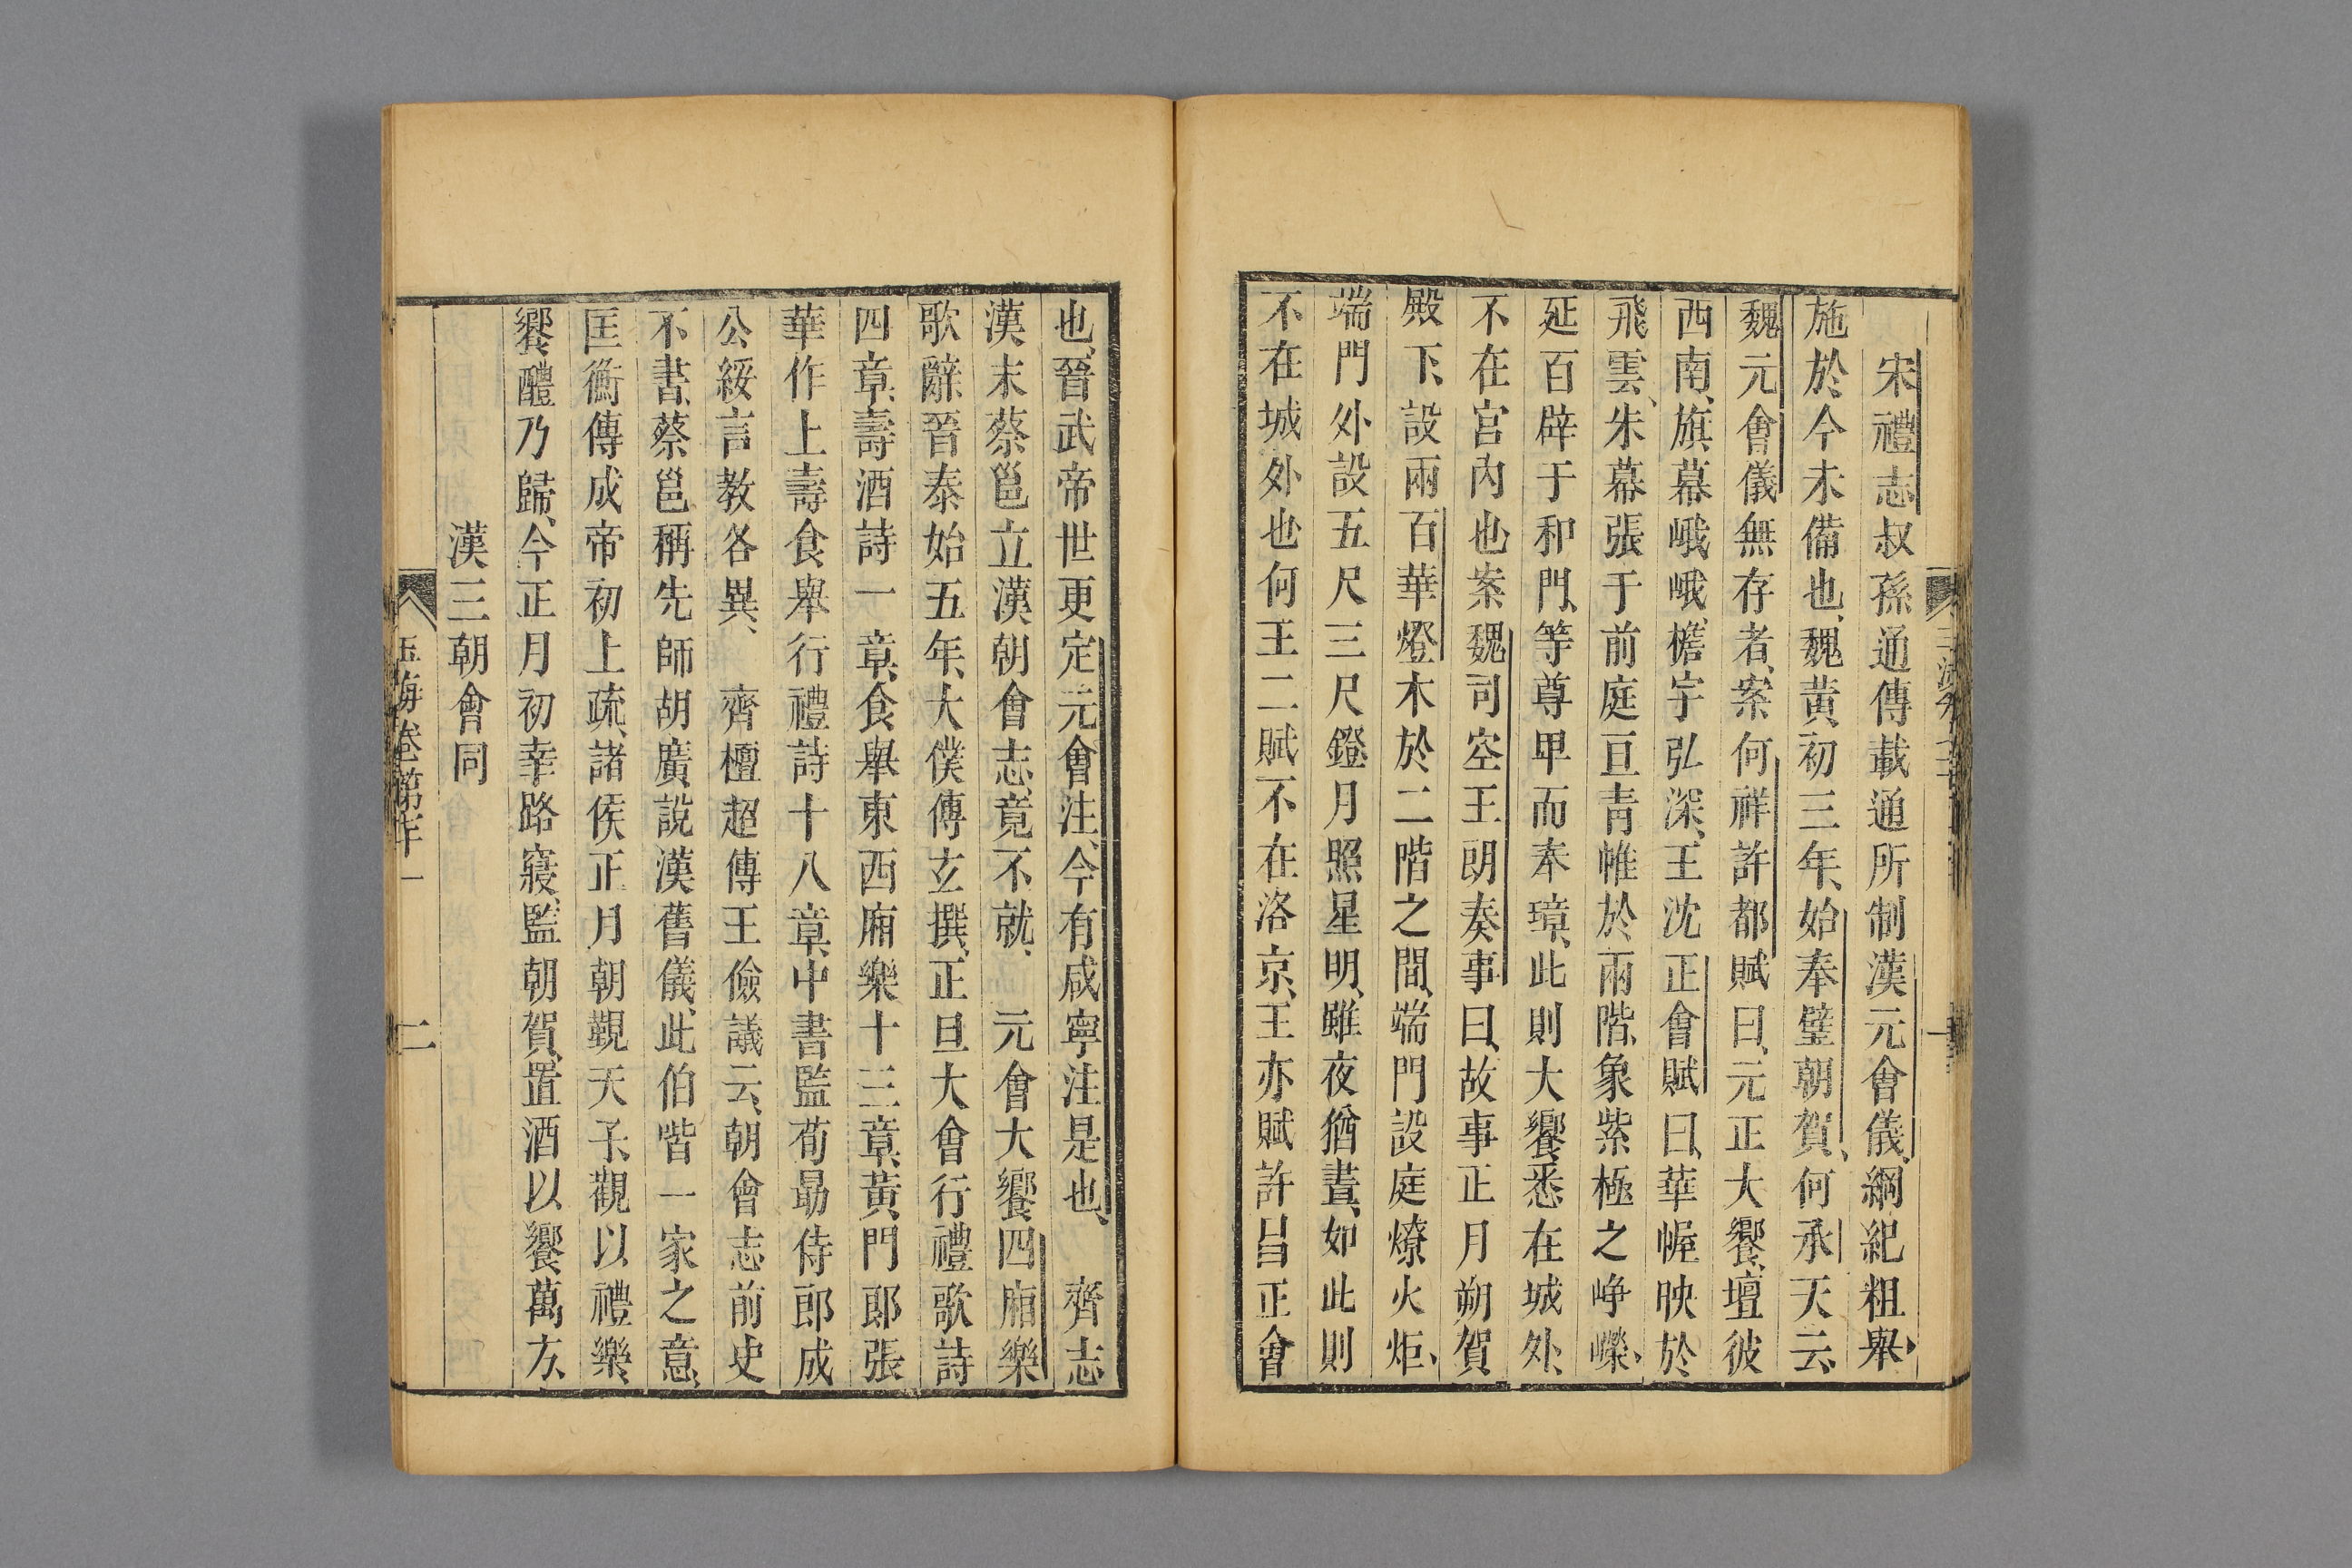 宋禮志叔孫通傳載通所制漢元會儀、綱紀粗舉、
施於今未備也、魏黃初三年、始奉璧朝賀、何承天云、
魏元會儀無存者、案何祥許都賦曰、元正大饗、壇彼
西南、旗幕峨峨、檐宇弘深、王沈正會賦曰、華幄映於
飛雲、朱幕張于前庭、亘青帷於兩階、象紫極之崢嶸、
延百辟于和門、等尊卑而奉璋、此則大饗、悉在城外、
不在宮內也、案魏司空王朗奏事曰、故事正月朔賀
殿下、設兩百華燈、木於二階之間、端門設庭燎火炬、
端門外設五尺三尺鐙、月照星明、雖夜猶晝、如此則
不在城外也、何王二賦不在洛京、王亦賦許昌正會
也、晉武帝世更定元會注、今有咸寧注是也、齊志
漢末蔡邕立漢朝會志、竟不就、元會大饗、四廂樂
歌辭晉泰始五年、大僕傅玄撰、正旦大會行禮歌詩
四章、壽酒詩一章、食舉東西廂樂十三章、黃門郎張
華作上壽食舉行禮詩十八章、中書監荀勗侍郎成
公綏言教各異、齊檀超傳王儉議云、朝會志前史
不書、蔡邕稱先師胡廣、說漢舊儀、此伯喈一家之意、
匡衡傳成帝初上疏、諸侯正月朝覲天子、觀以禮樂、
饗醴乃歸、今正月初幸路寢、監朝賀、置酒以饗萬方、
漢三朝會同
玉海卷第七十一
二